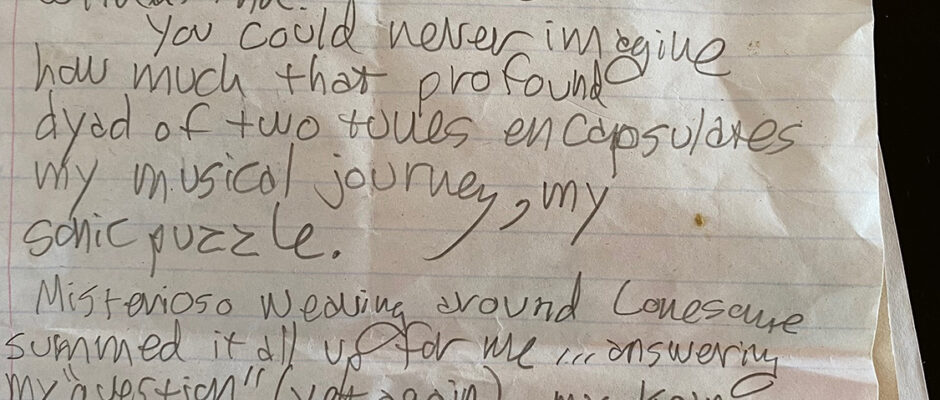 You could never imagine
how much that profound
dyad of two tones encapsulates
my musical journey, my
sonic puzzle.
Misterioso weaving around Lonesome
summed it all up for me ... answering
my "question" (yet again)